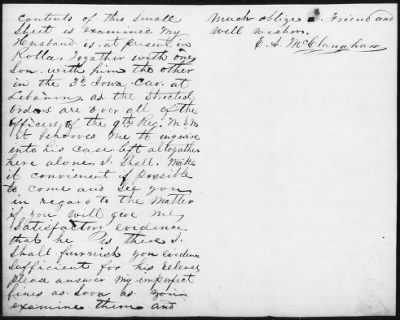 contents of this small
sheet is examined My
Husband is at present in
Rolla, Together with one
Son. with him the other
in the 3d Iowa Cav. at
Lebanon, as the strictest
orders are over all of the
officers of the 9th Reg. M.S.M
it behooves me to inquire
into his case left altogather
here alone. I Shall Make
it convienent if possible
to come and see you
in regard to the Matter
if you will give me
Satisfactory evidence
that he is there I
Shall furnish you evidence
Sufficient for his release
please answer my imperfect
lines as soon as you
examine them and
much oblige a Friend and
well wisher.
E. A. McClanahan